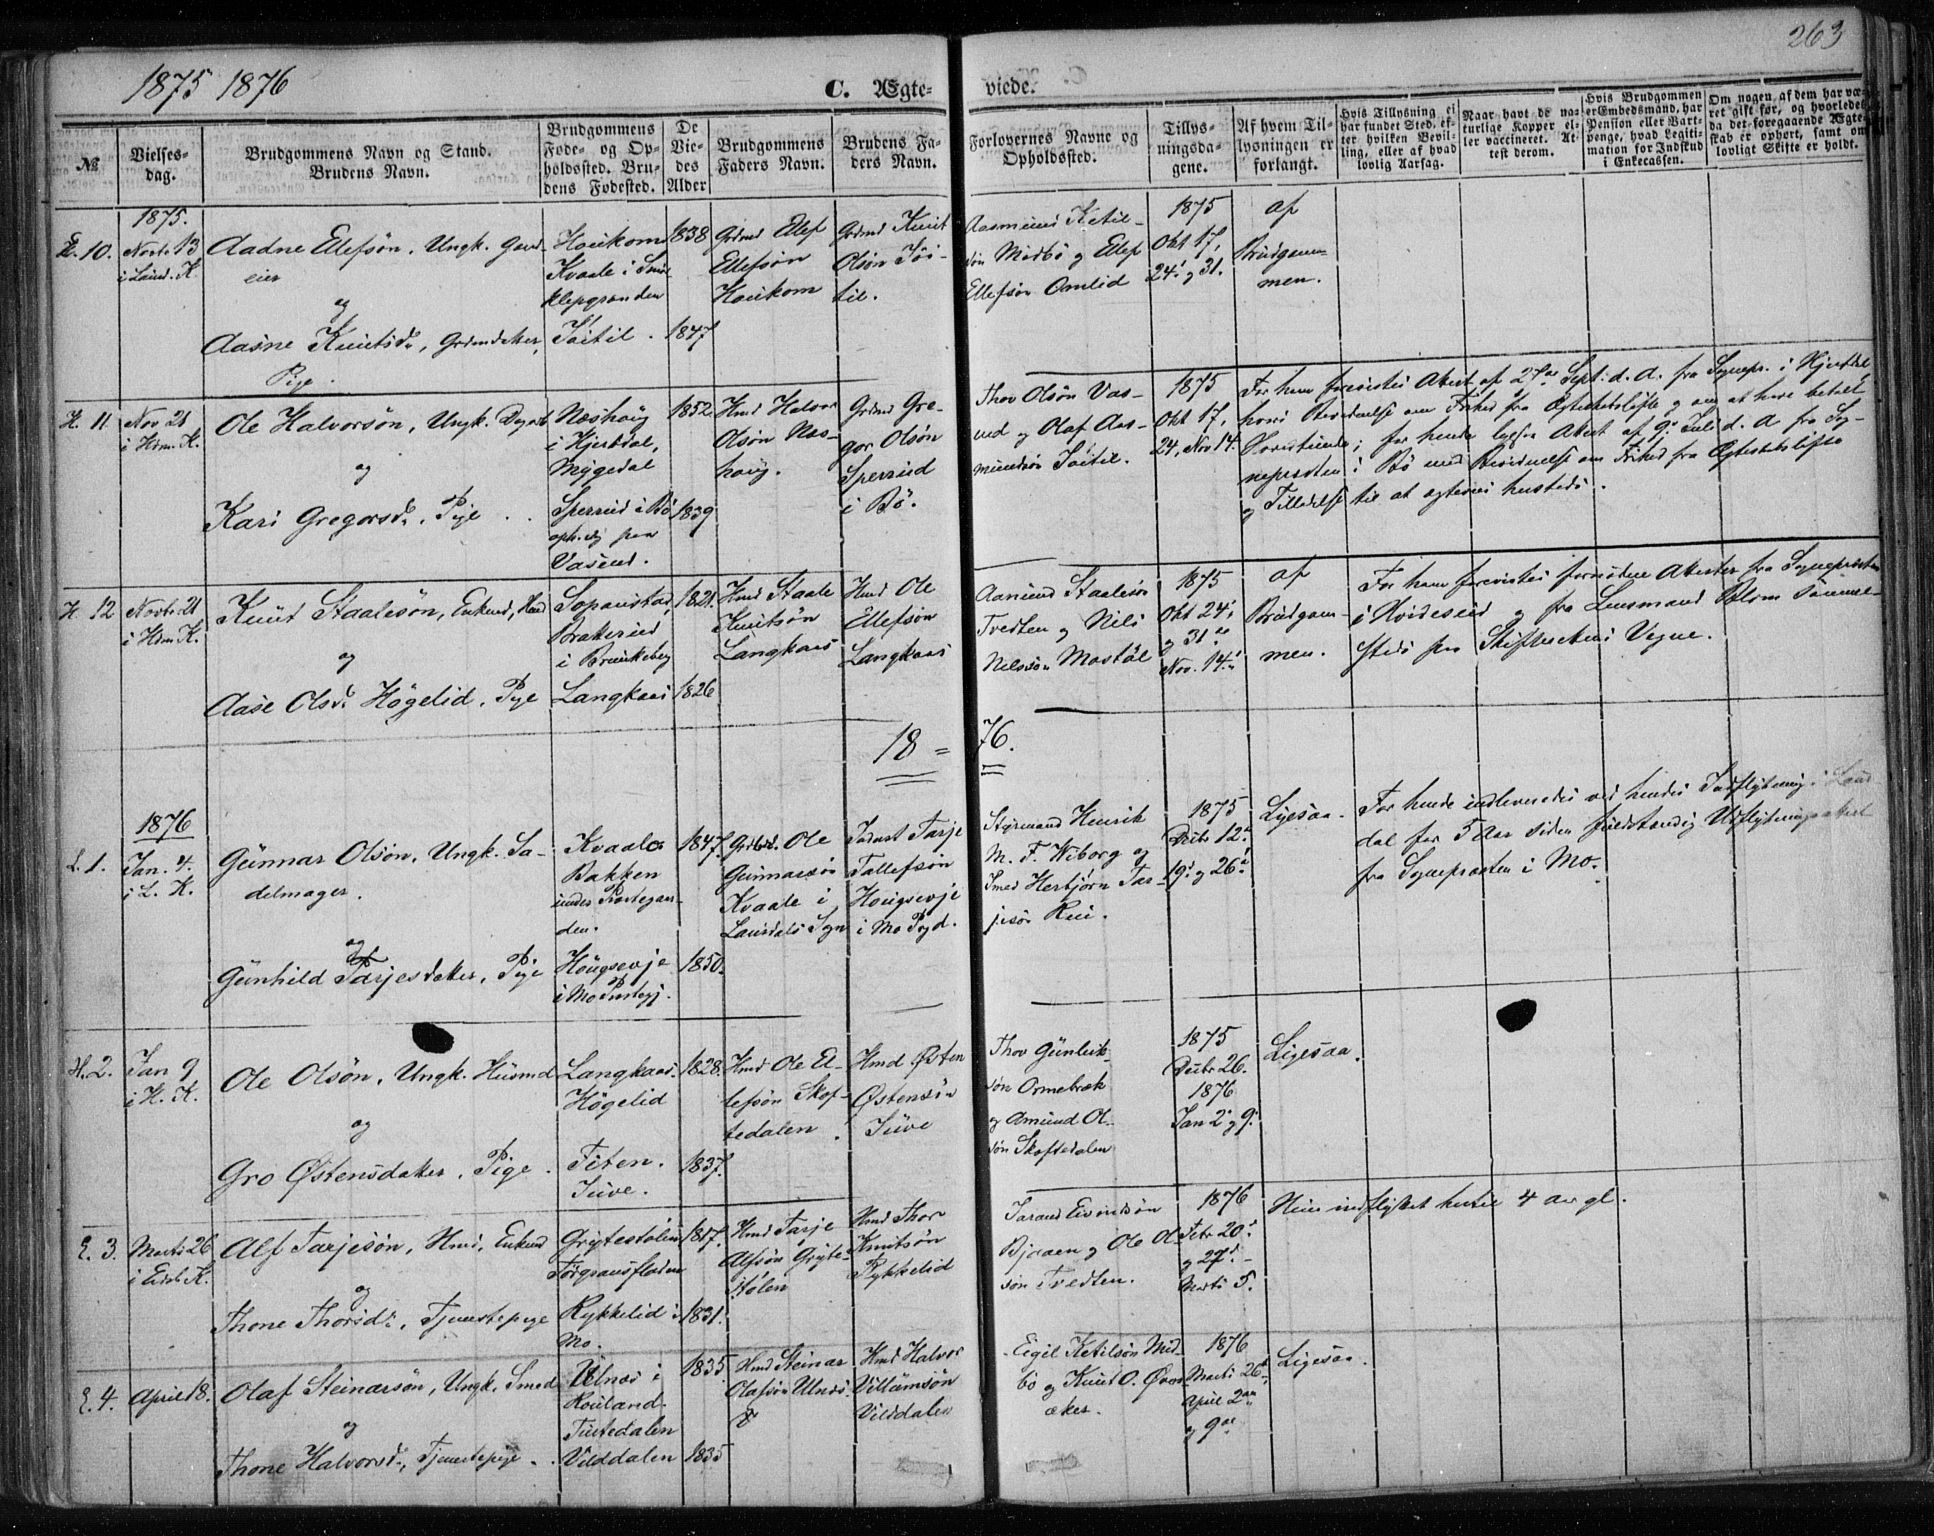 263
1875 1876
C. Ægte-
viede.
№
Vielses-
dag.
Brudgommens Navn og Stand.
Brudens Navn.
Brudgommens
Føde- og Op-
holdssted. Bru-
dens Fødested.
De
Vie-
des
Alder
Brudgommens
Faders Navn.
Brudens Fa-
ders Navn.
Forlovernes Navne og
Opholdssted.
Tillys-
ningsda-
gene.
Af hvem Til-
lysningen er
forlangt.
Hvis Tillysning ei
har fundet Sted, ef-
ter hvilken Bevil-
ling, eller af hvad
lovlig Aarsag.
Naar havt de na-
turlige Kopper el-
ler vaccineret. At-
test derom.
Hvis Brudgommen
er Embedsmand, har
Pension eller Vart-
penge, hvad Legiti-
mation for Indskud
i Enkecassen.
Om nogen af dem har væ-
ret gift før, og hvorledes
da det foregaaende Ægte-
skab er ophørt, samt om
lovligt Skifte er holdt.
1875.
10.
Novb. 13
i Laurd. K.
Aadne Ellefsön, Ungk. Gaard-
eier
og
Aasne Knutsd., Grdmdatter,
Pige.
Houkom
Kvaale i
1838
Töitil. 1847
Grdmd Ellef
Ellefsön
Houkom
Grdmd Knut
Olsön Töi-
til.
Aasmund Ketil-
sön Midbö og Ellef
Ellefsön Omlid
1875
Okt 17,
24. og 31.
af
Brudgom-
men.
H. 11
Nov 21
i Hdm. K.
Ole Halvorsön, Ungk.
og
Kari Gregorsd., Pige
Næshaug
i Hjerdal,
Mygedal
Sperrud i Bö
oph. sig paa
Vasend.
1852
1839
Hmd Halvor
Olsön Næs-
haug.
Grdmd Gre-
gor Olsön
Sperrud
i Bö.
Thov Olsön Vas-
end og Olaf Aas-
mundsön Töitil.
1875
Okt 17,
24, Nov 14.
For ham forevistes Attest af 27de Sept. d. A. fra Sognepr. i Hjerdal,
hans Bevidnelse om Frihed fra Ægteskabslöfte og om at have betalt
for hende ligesaa Attest af 9. Juli d. A. fra Sog-
nepresten i Bö med Bevidnelse om Frihed fra Ægteskabslöfte
og Tilladelse til at ægtevies hersteds.
H. 12
Novb. 21
i Hdm. K.
Knut Staalesön, Enkemd, Hmd
og
Aase Olsd. Högelid, Pige
Brækerud
i Brunkeberg
Langkaas
1821.
1826
Hmd Staale
Knutsön
Langkaas
Hmd Ole
Ellefsön
Langkaas
Aamund Staalesön
Tvedten og Nils
Nilssön Mostöl
1875
Okt 24.
og 31te
Nov. 14.
af
Brudgom-
men.
For ham forevistes fornödne Attester fra Sognepresten
i Hvideseid og fra Lensmand Blom
steds paa Skifterettens Vegne.
18 = 76.
1876
L. 1.
Jan. 4.
i L. K.
Gunnar Olsön, Ungk. Sa-
delmager.
og
Gunhild Tarjesdatter, Pige
Kvaale
Bakken
under Præstegaar-
den.
Hougsevje
i Mo Prstegj.
1847.
1850.
Ole
Gunnarsön
Kvaale i
Laurdals Sogn
Tarje
Tallefsön
Hougsevje
i Mo Prgd.
Styrmand Henrik
M. F. Wiborg og
Smed Herbjörn Tar-
jesön Rui.
1875
Decbr 12.
19. og 26.
Ligesaa.
For hende indleveredes ved hendes Indflytning i Laur-
dal for 5 Aar siden fuldstændig Udflytningsattest
fra Sognepræsten i Mo.
H. 2.
Jan 9
i H. K.
Ole Olsön, Ungk. Husmd
og
Gro Østensdatter, Pige.
Langkaas.
Högelid
Juve.
1828.
1837.
Hmd Ole El-
lefsön Skof-
tedalen
Hmd Østen
Østensön
Juve
Thov Gunleik-
sön Ormebræk
og Amund Ol-
sön Skoftedalen
1875
Decbr 26.
1876
Jan 2. og 9.
Ligesaa.
E. 3.
Marts 26
i Eidsb. K.
Alf Tarjesön, Hmd, Enkemd
og
Thone Thorsd., Tjenestepige
Grytestölen
Rykkelid i
Mo.
1817.
1831.
Hmd Tarje
Alfsön Gryte-
stölen
Hmd Thor
Knutsön
Rykkelid
Tarand Eivindsön
Bjaaen og Ole Ol-
sön Tvedten.
1876
Febr 20.
og 27.
Marts 5.
Hun indflyttet hertil 4 Aar gl.
E. 4.
April 18.
Olaf Steinarsön, Ungk. Smed
og
Thone Halvorsd., Tjenestepige.
Ulnæs i
Rauland.
Vilddalen
1835.
1835
Hmd Steinar
Olafsön Ulnæs.
Hmd Halvor
Villumsön
Vilddalen
Eigil Ketilsön Mid-
bö og Knut O. Øver-
aker.
1876
Marts 26
April 2
og 9de
Ligesaa.